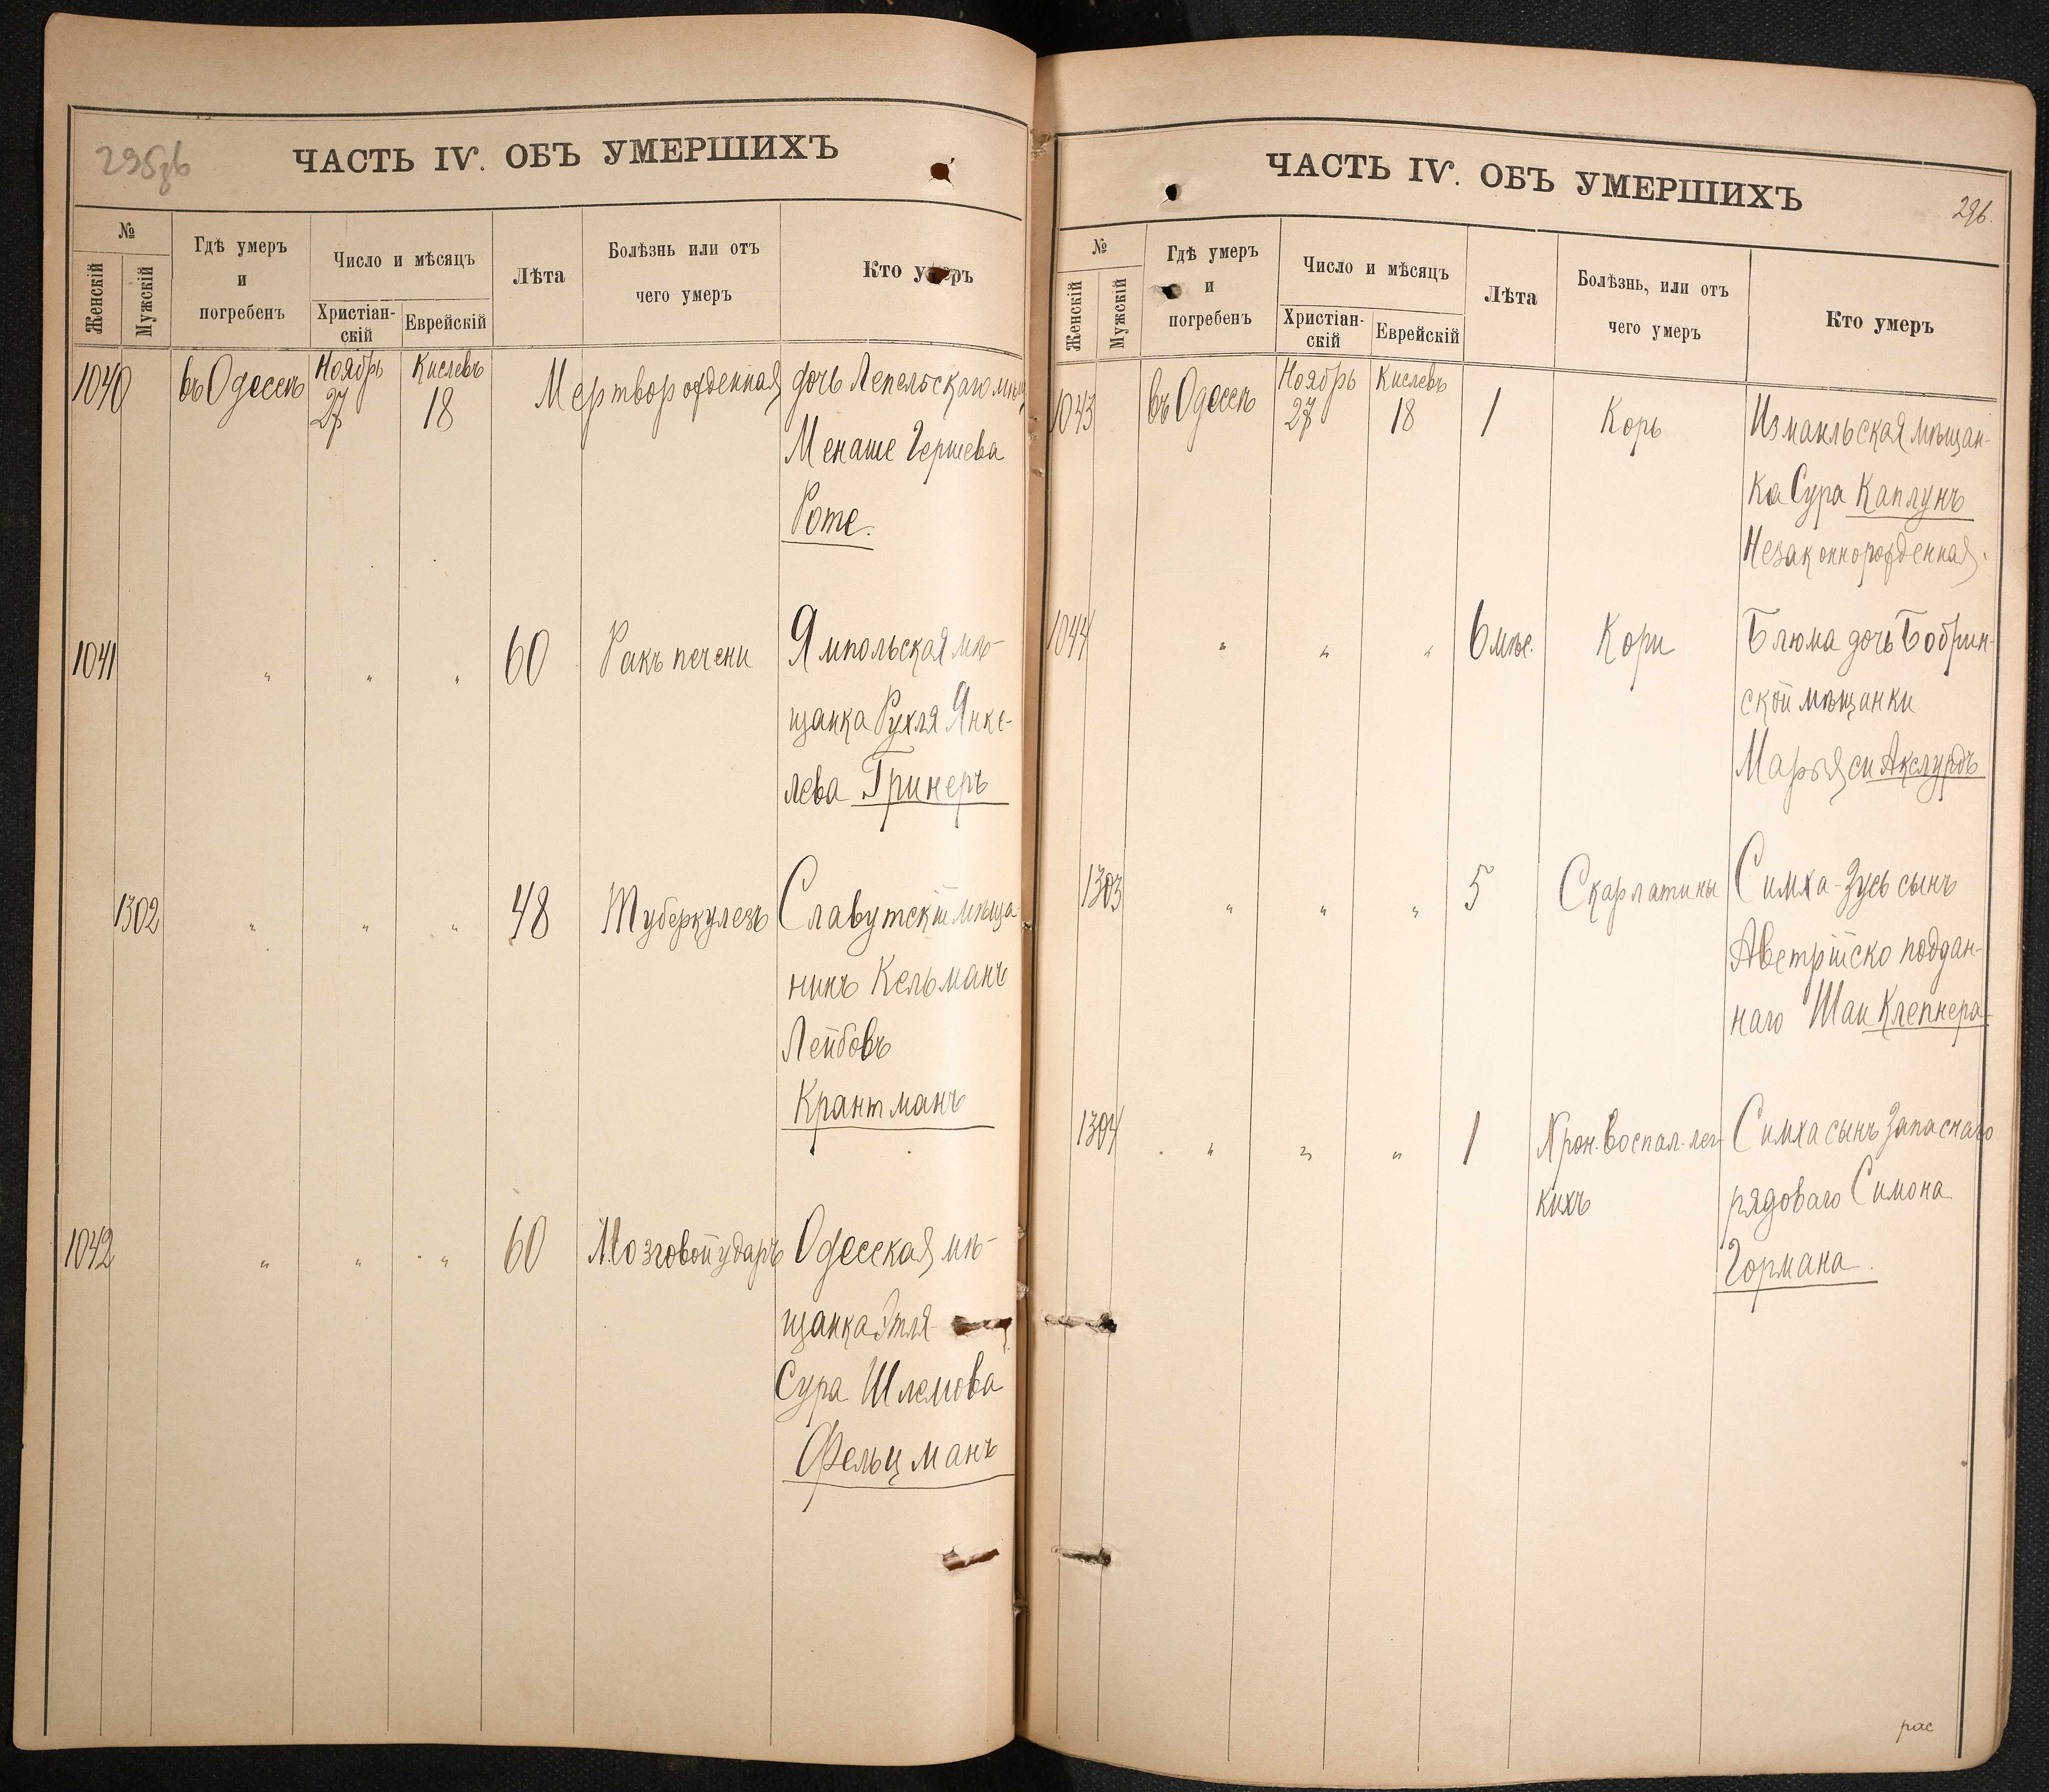 295зв
ЧАСТЬ IV. ОБЪ УМЕРШИХЪ
№
Женскій
Мужскій
Гдѣ умеръ
и
погребенъ
Число и мѣсяцъ
Христіан-
скій
Еврейскій
Лѣта
Болѣзнь или отъ
чего умеръ
Кто умеръ
1040 въ Одессѣ Ноябрь 27 Кислевъ 18 Мертворожденная дочь Лепельскаго мѣщ
Менаше Гершева
Роте.
1041 " " " 60 Ракъ печени Ямпольская мѣ-
щанка Рухля Янке-
лева Гринеръ
1302 " " " 48 Туберкулезъ Славутскій мѣща-
нинъ Кельманъ
Лейбовъ
Крантманъ
1042 " " " 60 Мозговой ударъ Одесская мѣ-
щанка Этля-
Сура Шлемова
Фельцманъ
ЧАСТЬ IV. ОБЪ УМЕРШИХЪ
296.
№
Женскій
Мужскій
Гдѣ умеръ
и
погребенъ
Число и мѣсяцъ
Христіан-
скій
Еврейскій
Лѣта
Болѣзнь, или отъ
чего умеръ
Кто умеръ
1043 въ Одессѣ Ноябрь 27 Кислевъ 18 1 Корь Измаильская мѣщан-
ка Сура Каплунъ
Незаконнорожденная.
1044 " " " 6 мѣс. Кори Блюма дочь Бобрин-
ской мѣщанки
Марьяси Акслурдъ
1303 " " " 5 Скарлатины Симха-Зусь сынъ
Австрійско поддан-
наго Шаи Клепнера
1304 " " " 1 Хрон. воспал. лег-
кихъ
Симха сынъ Запаснаго
рядоваго Симона
Гормана.
рас